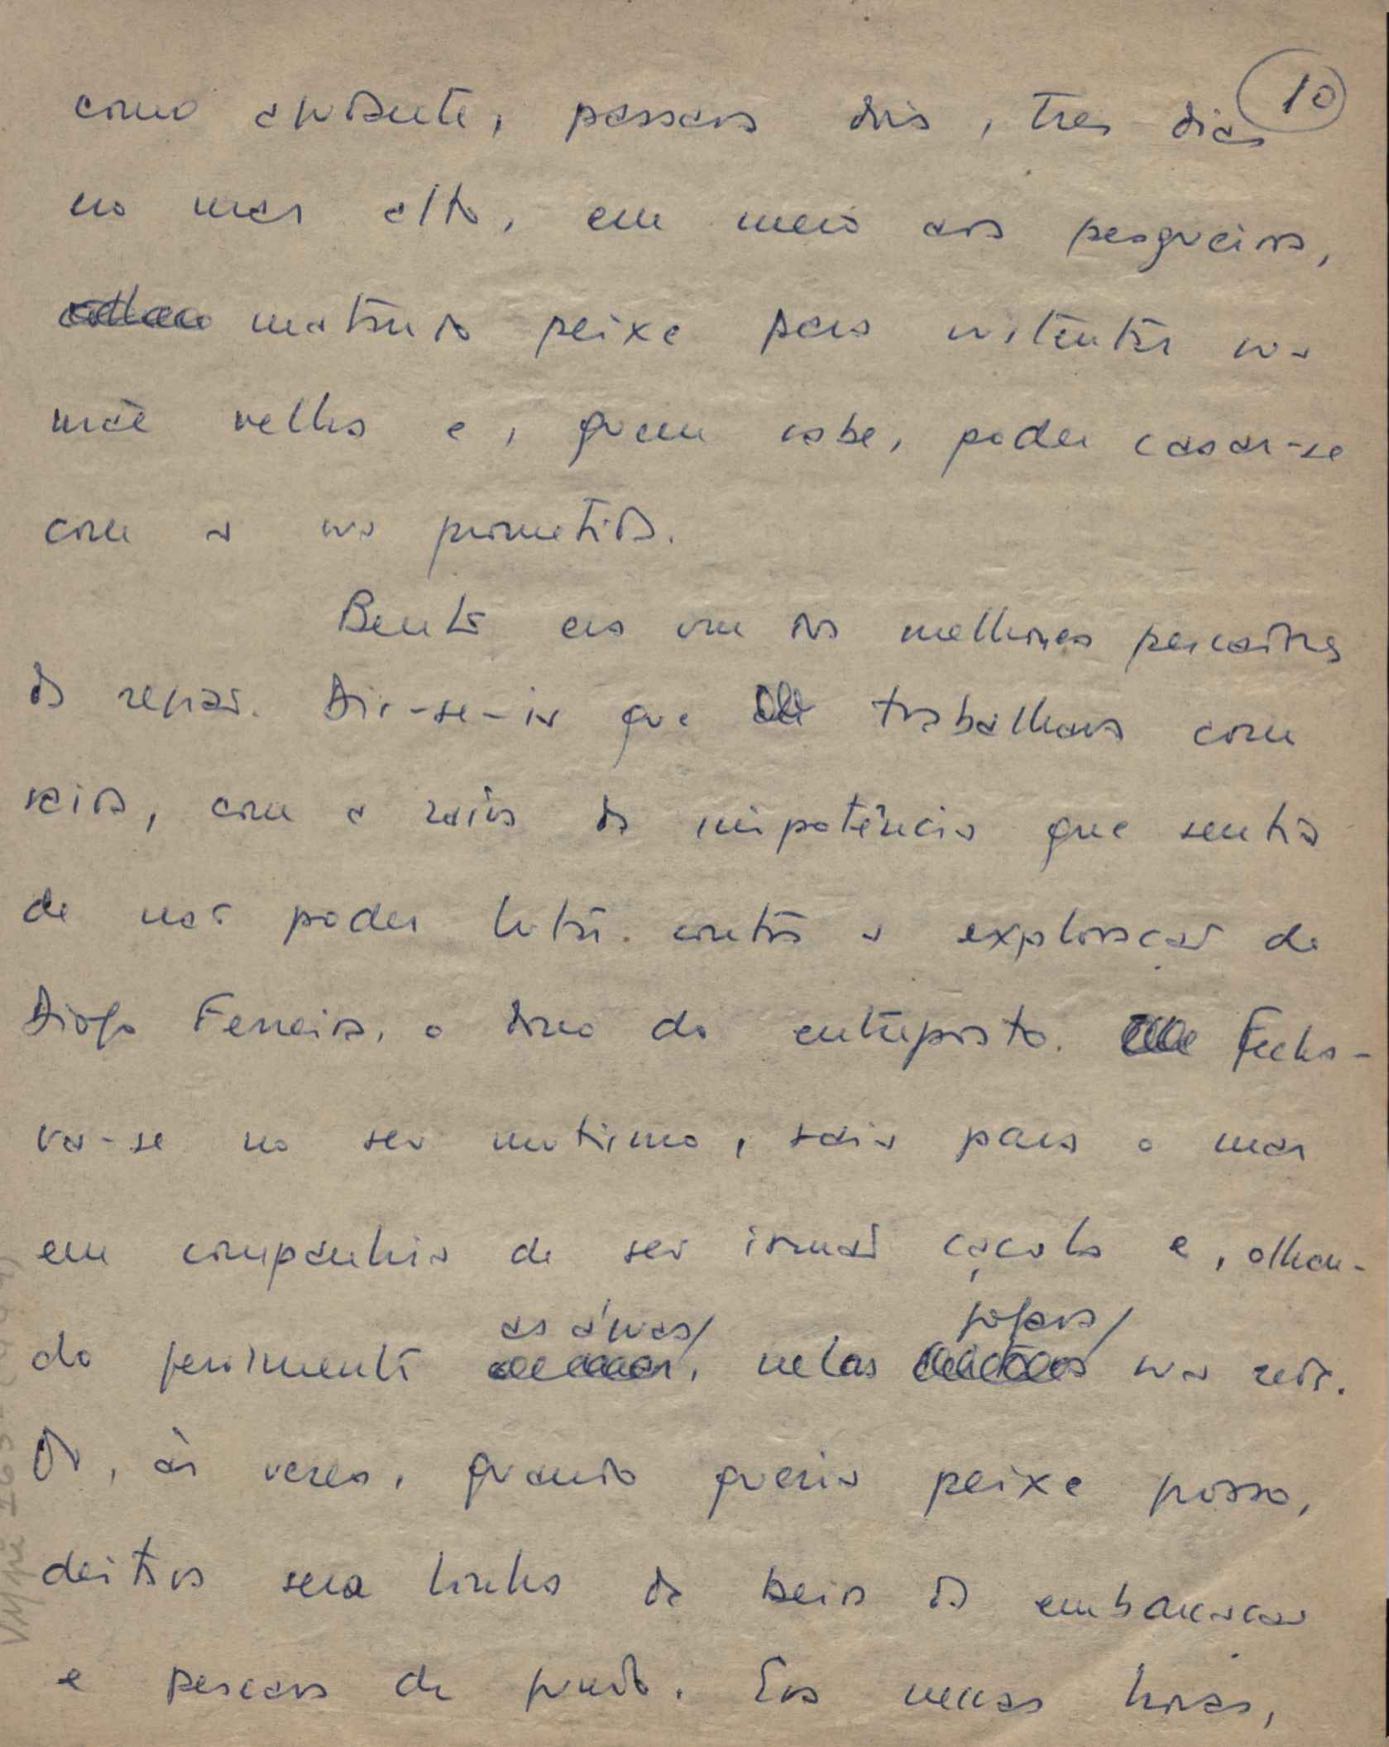 10
como ajudante, passava dois, tres dias
no mar alto, em meio aos pesqueiros,
matando peixe para sustentar sua
mãe velha e, quem sabe, poder casar-se
com a sua prometida.
Bento era um dos melhores pescadores
da região. Dir-se-ia que trabalhava com
raiva, com a raiva da impotência que sentia
de não poder lutar contra a exploração de
Diogo Ferreira, o dono do entreposto. Fecha-
va-se no seu mutismo, saia para o mar
em companhia de seu irmão caçula e, olhan-
as águas jogava
do fixamente, nelas sua rede.
Ou, às vezes, quando queria peixe grosso,
deitava sua linha da beira da embarcação
e pescava de fundo. Era nessas horas,